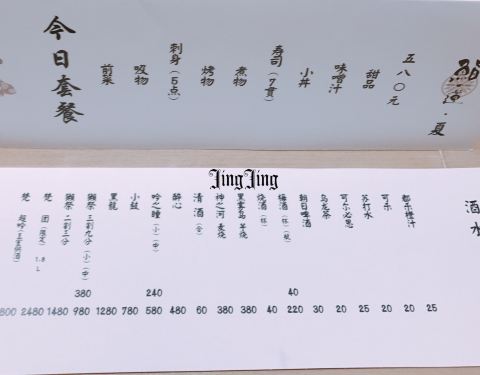 鮨
蓮・夏
今日套餐
前菜
吸物
刺身(5点)
烤物
煮物
寿司(7貫)
小丼
味噌汁
甜品
五八〇元
JingJing
酒水
都乐橙汁 25
可乐 20
苏打水 20
可尔必思 25
乌龙茶 20
朝日啤酒 30
梅酒(杯)(瓶) 40 220
烧酒(杯) 40
黑雾岛 芋烧 380
神之河 麦烧 380
清酒(合) 60
醉心 480
吟之瞳(小)(中) 240 580
小鼓 780
黑龍 1280
獭祭 三割九分(小)(中) 380 980
獭祭 二割三分 1480
梵 团(限定) 1.8L 2480
梵 超吟(王室供酒) 800